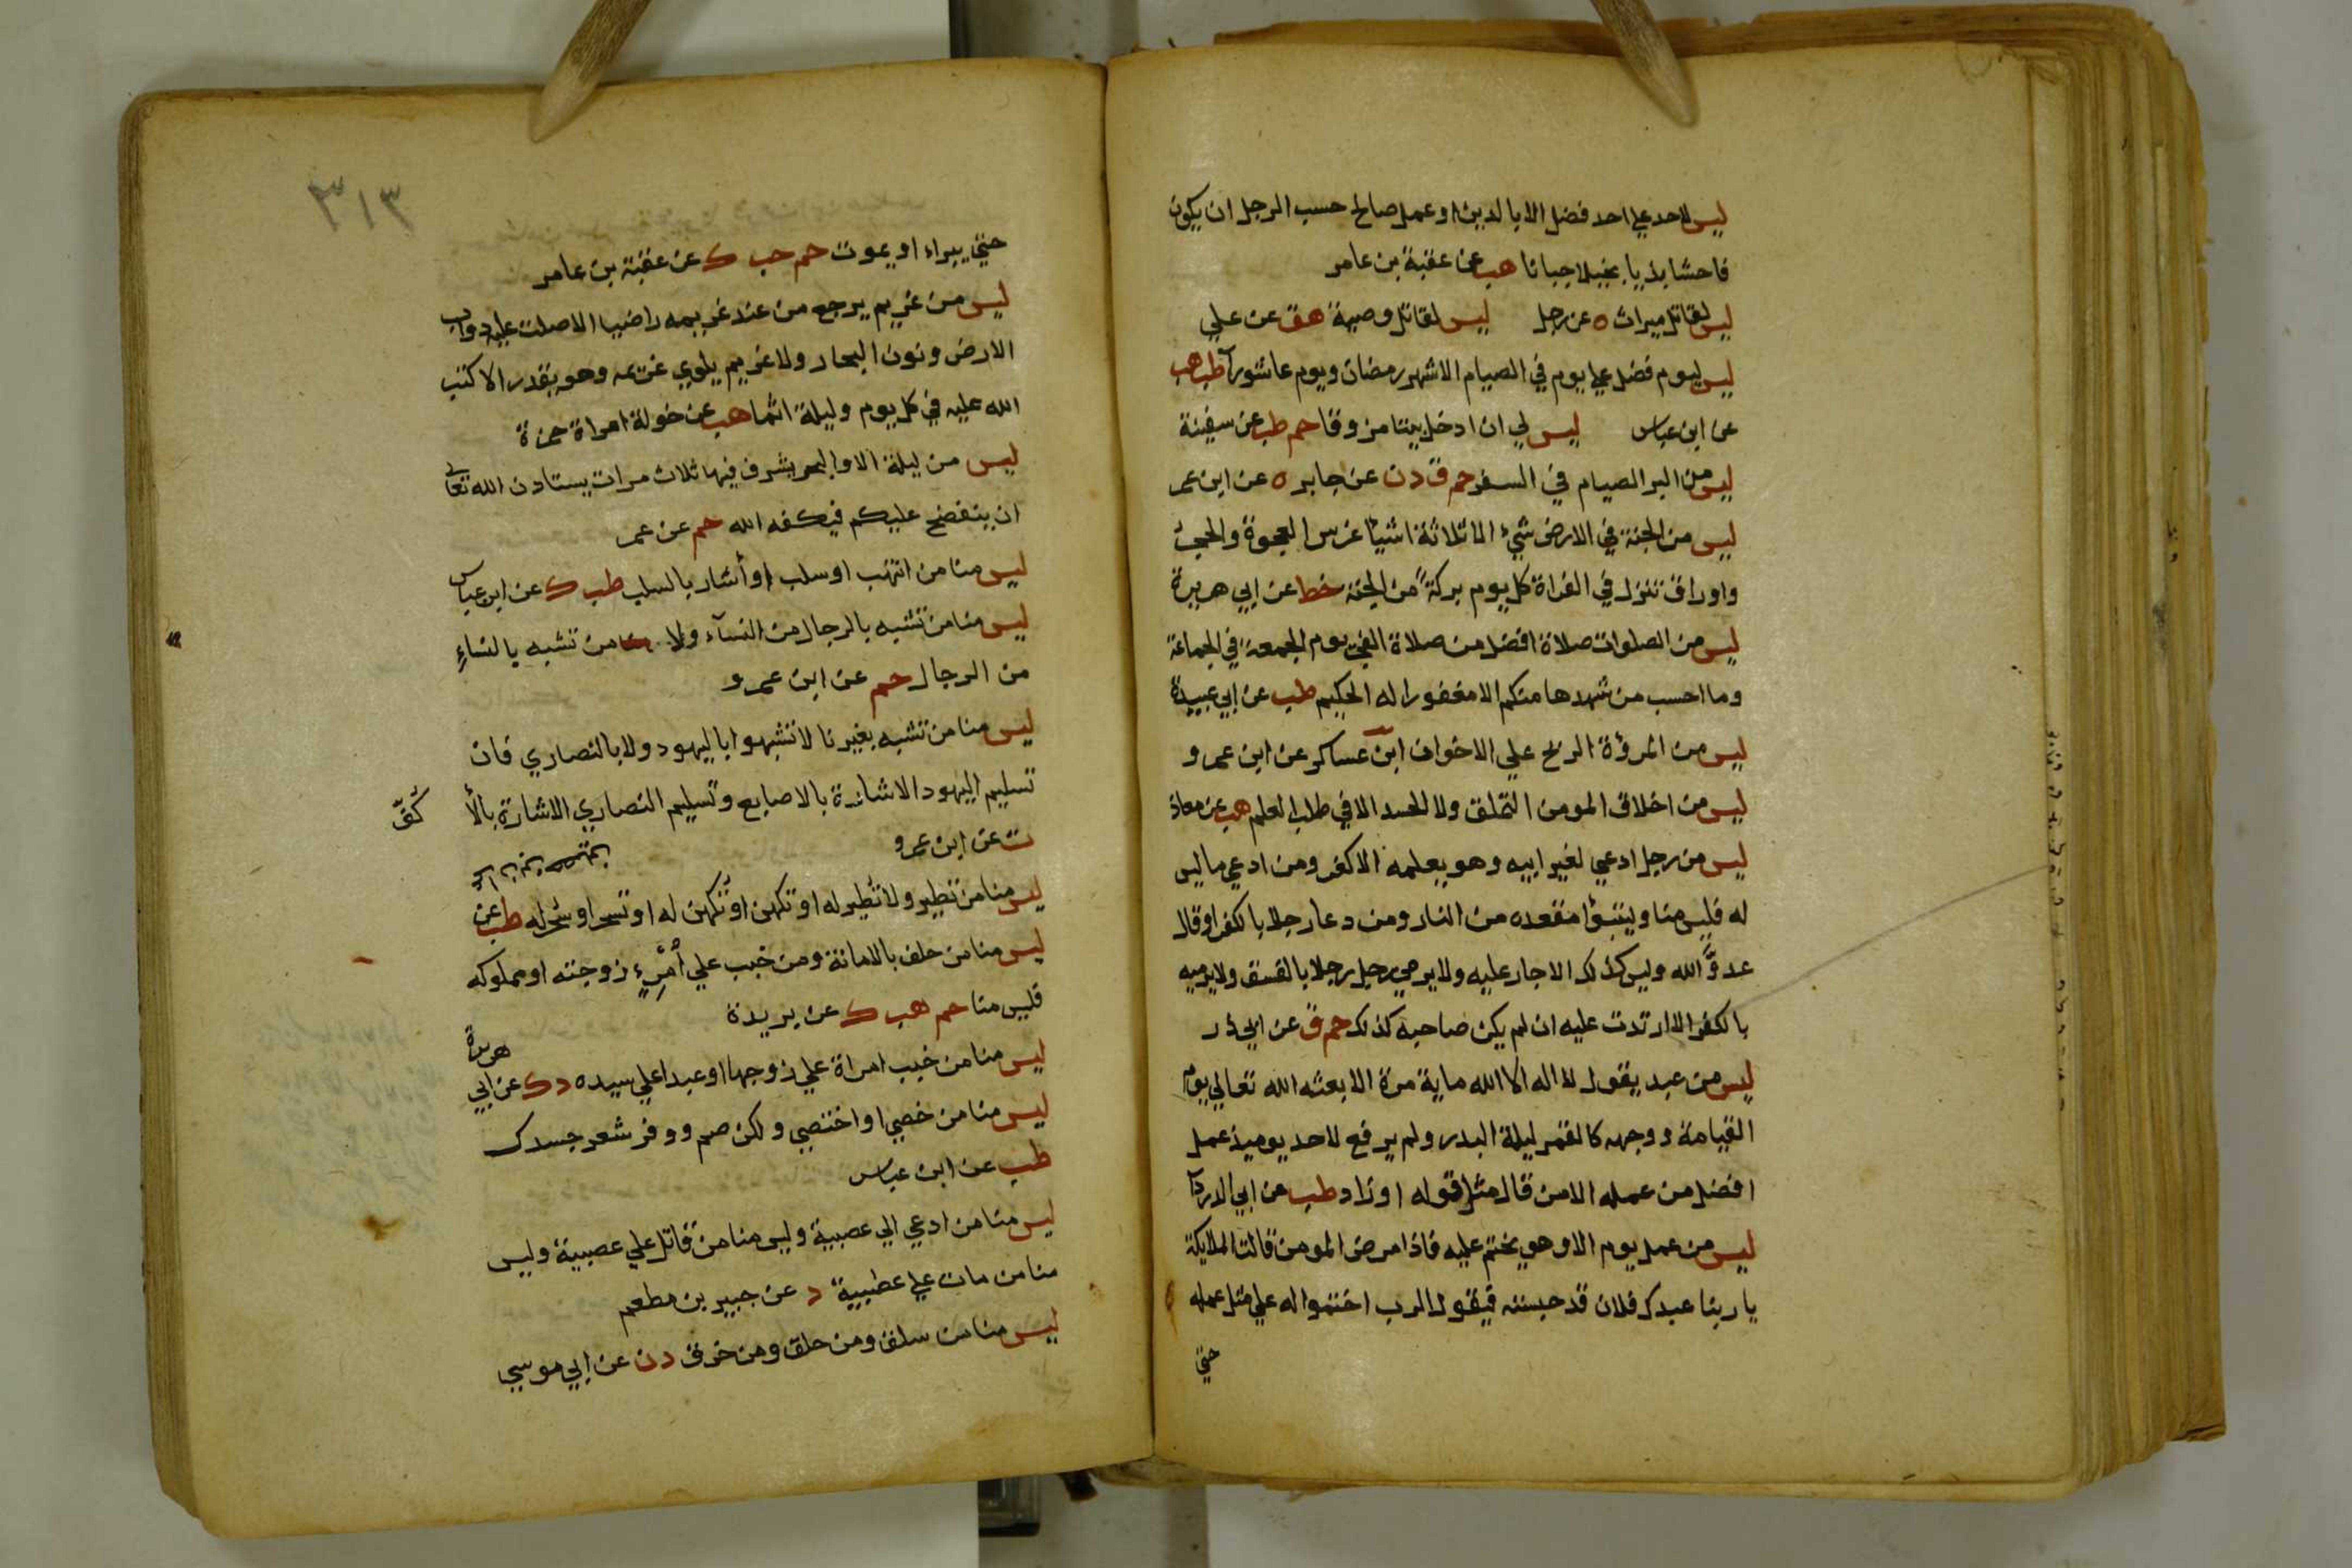 ليس لاحد علي احد فضل الا بالدين او عمل صالح حسب الرجل ان يكون
فاحشا بذيا بخيلا جبانا هب عن عقبة بن عامر
ليس لقاتل ميراث ه عن رجل ليس لقاتل وصية هق عن علي
ليس ليوم فضل علي يوم في الصيام الا شهر رمضان ويوم عاشورآ طب هب
عن ابن عباس ليس لي ان ادخل بيتا مزوقا حم طب عن سفينة
ليس من البر الصيام في السفر حم ق د ن عن جابر ه عن ابن عمر
ليس من الجنة في الارض شيء الا ثلاثة اشيا غرس العجوة والحجر
واوراق تنزل في الفراة كل يوم بركة من الجنة خط عن ابي هريرة
ليس من الصلوات صلاة افضل من صلاة الفجر يوم الجمعة في الجماعة
وما احسب من شهدها منكم الا مغفورا له الحكيم طب عن ابي عبيدة
ليس من المرؤة الربح علي الاخوان ابن عساكر عن ابن عمرو
ليس من اخلاق المومن التملق ولا الحسد الا في طلب العلم هب عن معاذ
ليس من رجل ادعي لغير ابيه وهو يعلمه الا كفر ومن ادعي ما ليس
له فليس منا وليتبؤا مقعده من النار ومن دعا رجلا بالكفر او قال
عدوَّ الله وليس كذلك الا حار عليه ولا يرمي رجل رجلا بالفسق ولا يرميه
بالكفر الا ارتدت عليه ان لم يكن صاحبه كذلك حم ق عن ابي ذر
ليس من عبد يقول لا اله الا الله ماية مرة الا بعثه الله تعالي يوم
القيامة ووجهه كالقمر ليلة البدر ولم يرفع لاحد يوميذ عمل
افضل من عمله الا من قال مثل قوله او زاد طب عن ابي الدردآ
ليس من عمل يوم الا وهو يختم عليه فاذا مرض المومن قالت الملايكة
يا ربنا عبدك فلان قد حبسته فيقول الرب اختموا له علي مثل عمله
حتي
٣١٣
حتي يبراء او يموت حم حب ك عن عقبة بن عامر
ليس من غريم يرجع من عند غريمه راضيا الا صلت عليه دواب
الارض ونون البحار ولا غريم يلوي غريمه وهو يقدر الا كتب
الله عليه في كل يوم وليلة اثما هب عن خولة امراة حمزة
ليس من ليلة الا والبحر يشرف فيها ثلاث مرات يستاذن الله تعالي
ان ينفضح عليكم فيكفه الله حم عن عمر
ليس منا من انتهب او سلب او أشار بالسلب طب ك عن ابن عباس
ليس منا من تشبه بالرجال من النسآء ولا من تشبه بالنساءِ
من الرجال حم عن ابن عمرو
ليس منا من تشبه بغيرنا لا تشبهوا باليهود ولا بالنصاري فان
تسليم اليهود الاشارة بالاصابع وتسليم النصاري الاشارة بالأ
كُفّ
ت عن ابن عمرو
ليس منا من تطير ولا تُطير له او تكهن او تُكهن له او تسحر او سُحر له طب عن
ليس منا من حلف بالامانة ومن خبب علي أمرِيءٍ زوجته او مملوكه
فليس منا حم هب ك عن بريدة
ليس منا من خبب امراة علي زوجها او عبدا علي سيده د ك عن ابي
هريرة
ليس منا من خصي او اختصي ولكن صم ووفر شعر جسدك
طب عن ابن عباس
ليس منا من ادعي الي عصبية وليس منا من قاتل علي عصبية وليس
منا من مات علي عصبية د عن جبير بن مطعم
ليس منا من سلق ومن حلق ومن خرق د ن عن ابي موسي